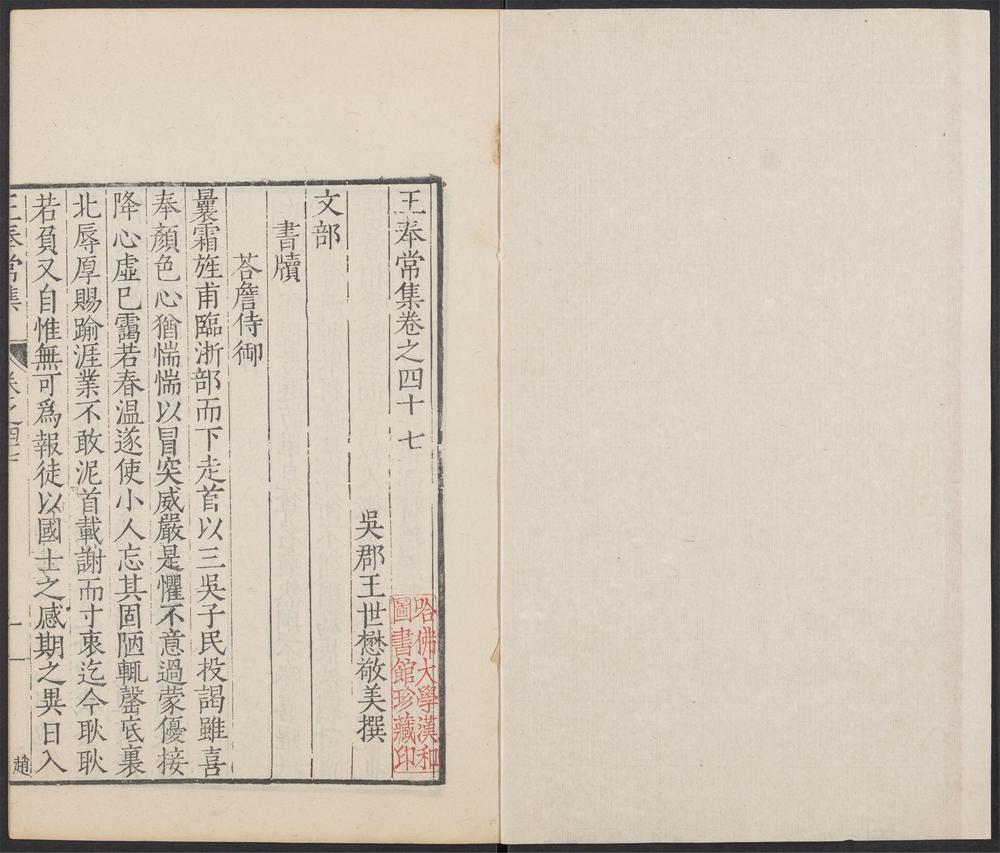 王奉常集卷之四十七
吳郡王世懋敬美撰
哈佛大學漢和
圖書館珍藏印
文部
書牘
荅詹侍御
曩霜旌甫臨浙部而下走首以三吳子民投謁雖喜
奉顏色心猶惴惴以冒突威嚴是懼不意過蒙優接
降心虛已靄若春温遂使小人忘其固陋輒罄底裏
北辱厚賜踰涯業不敢泥首載謝而寸衷迄今耿耿
若負又自惟無可爲報徒以國士之感期之異日入
王奉常集
卷之四十七
一
趙